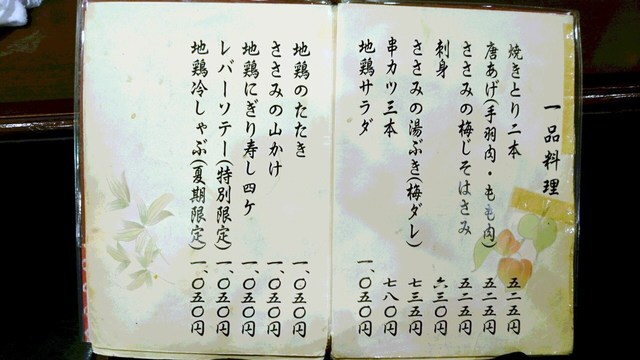 一品料理
焼きとり二本 五二五円
唐あげ(手羽肉・もも肉) 五二五円
ささみの梅じそはさみ 五二五円
刺身 六三〇円
ささみの湯ぶき(梅ダレ) 七三五円
串カツ三本 七八〇円
地鶏サラダ 一、〇五〇円
地鶏のたたき 一、〇五〇円
ささみの山かけ 一、〇五〇円
地鶏にぎり寿し四ケ 一、〇五〇円
レバーソテー(特別限定) 一、〇五〇円
地鶏冷しゃぶ(夏期限定) 一、〇五〇円